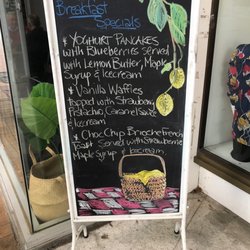 Breakfast
Specials
* YOGHURT PANCAKES
with Blueberries Served
with Lemon Butter, Maple
Syrup & Icecream
* Vanilla Waffles
topped with Strawberry,
Pistachio, Caramel Sauce
& Icecream
* Choc Chip Brioche French
Toast Served with Strawberries
Maple Syrup & Icecream